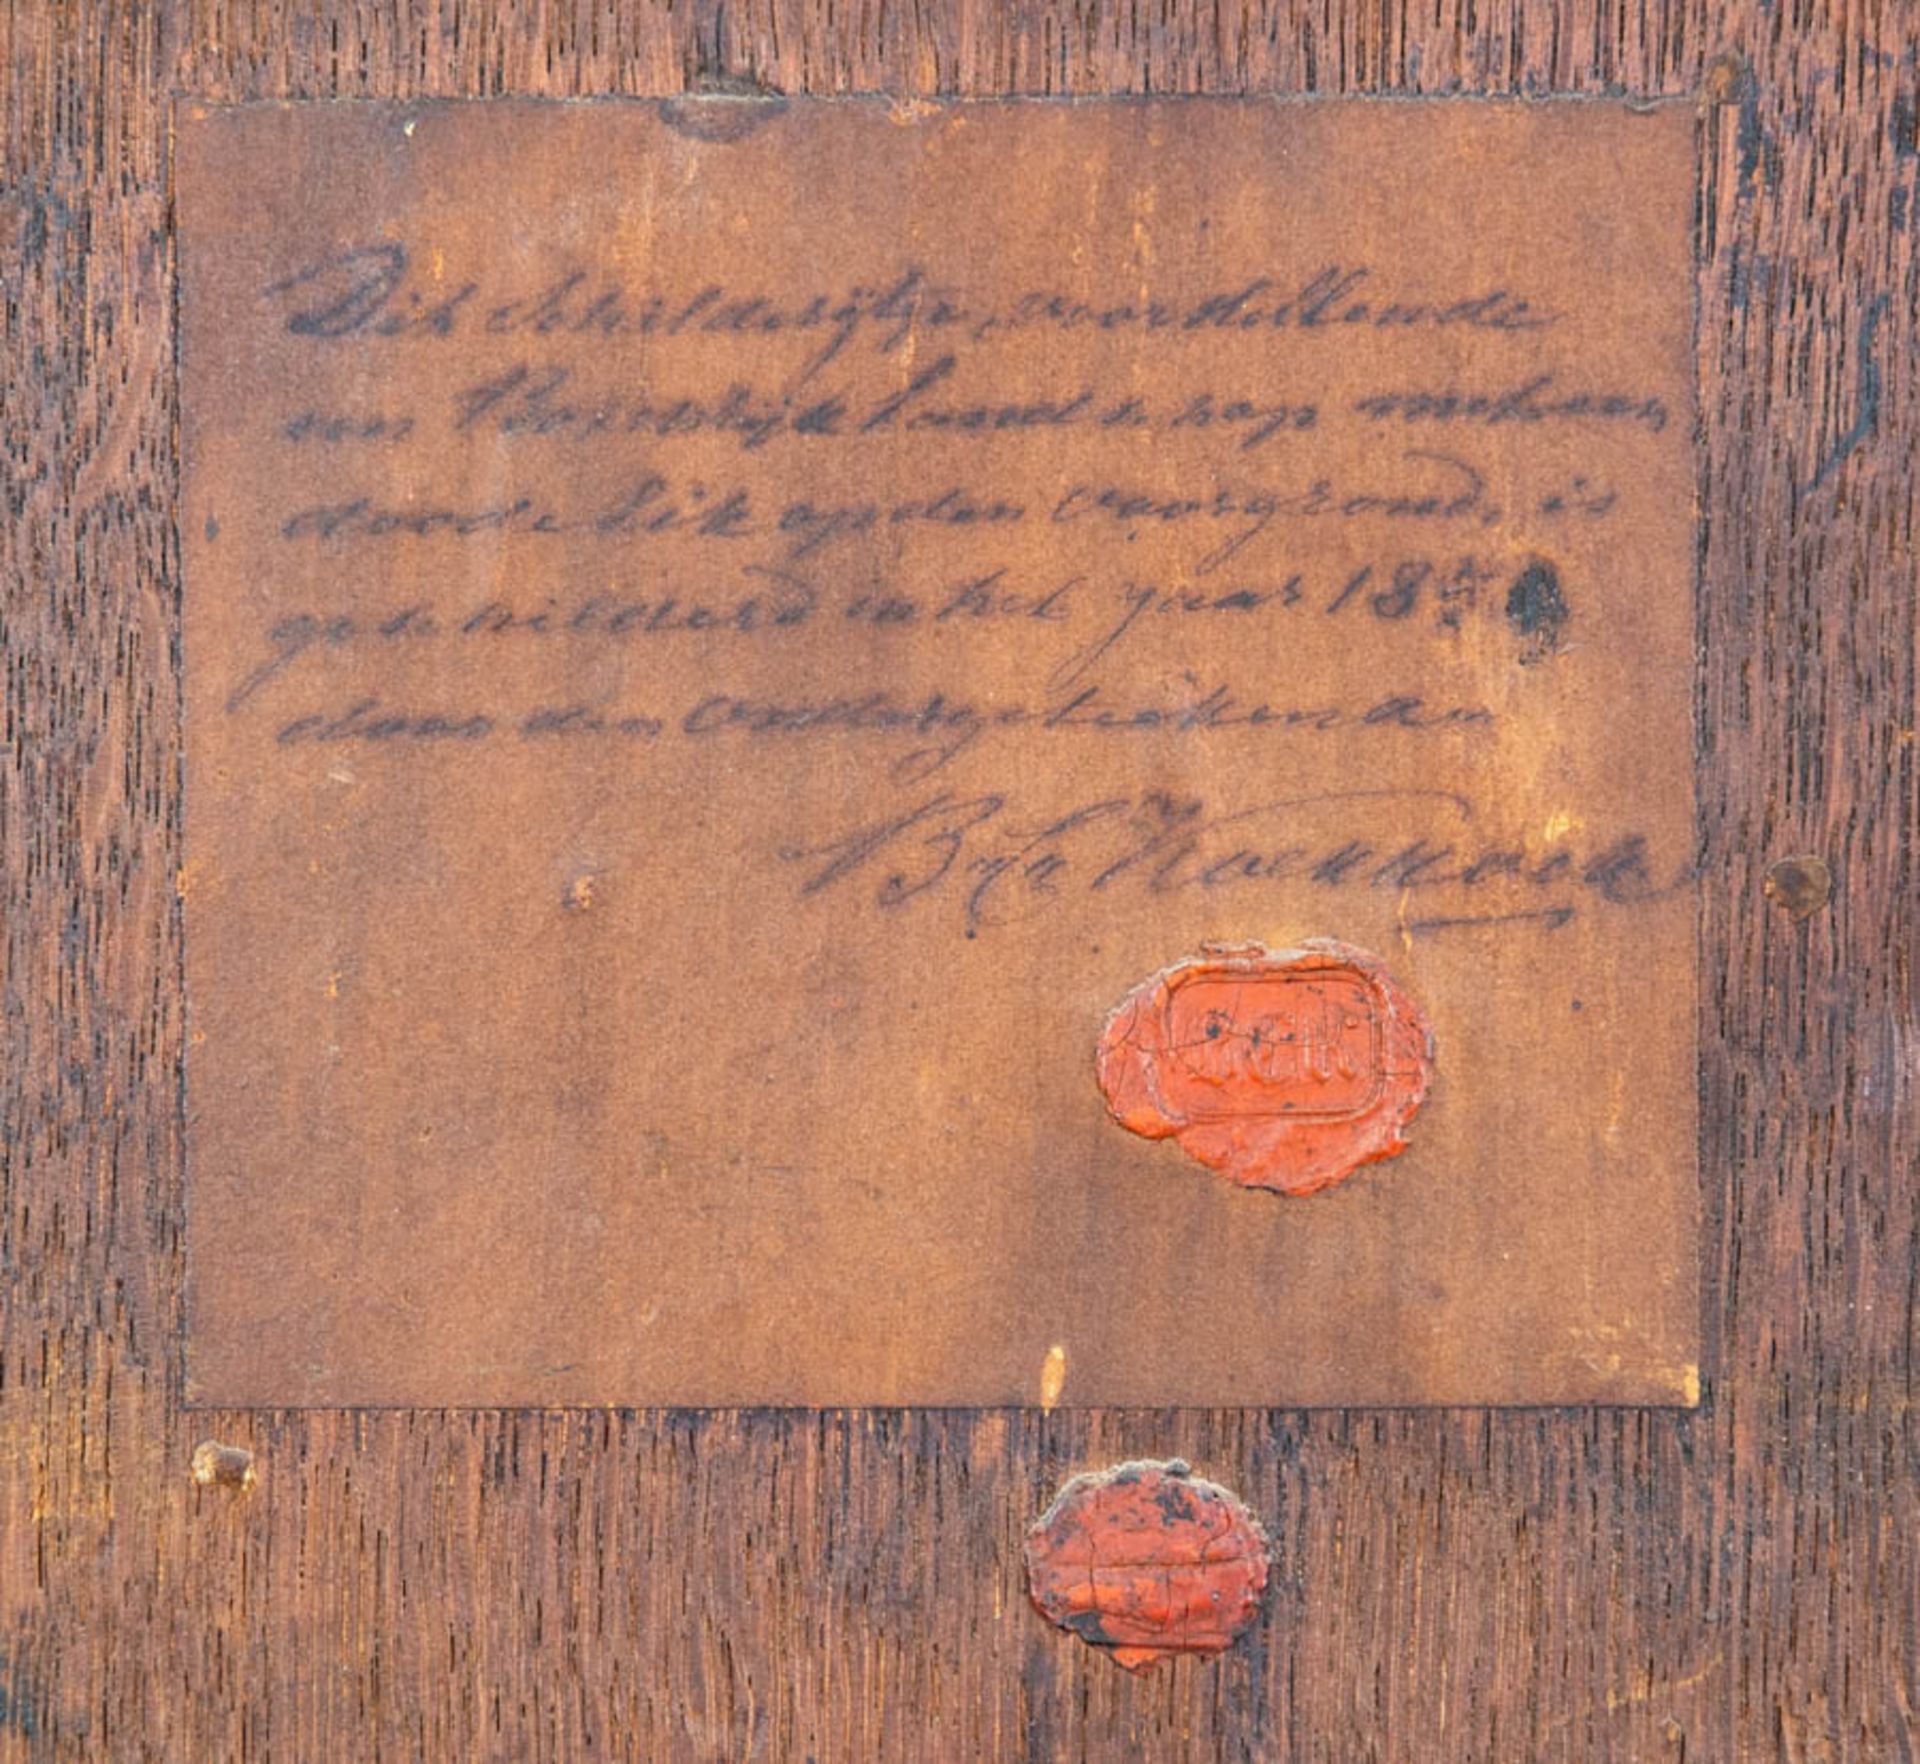 Dit Schilderijtje, voorstellende
een Boschrijk Landschap met een
doode Eik op den Voorgrond, is
geschilderd in het jaar 18
door den Ondergeteekenden
B C Koekkoek
BCK